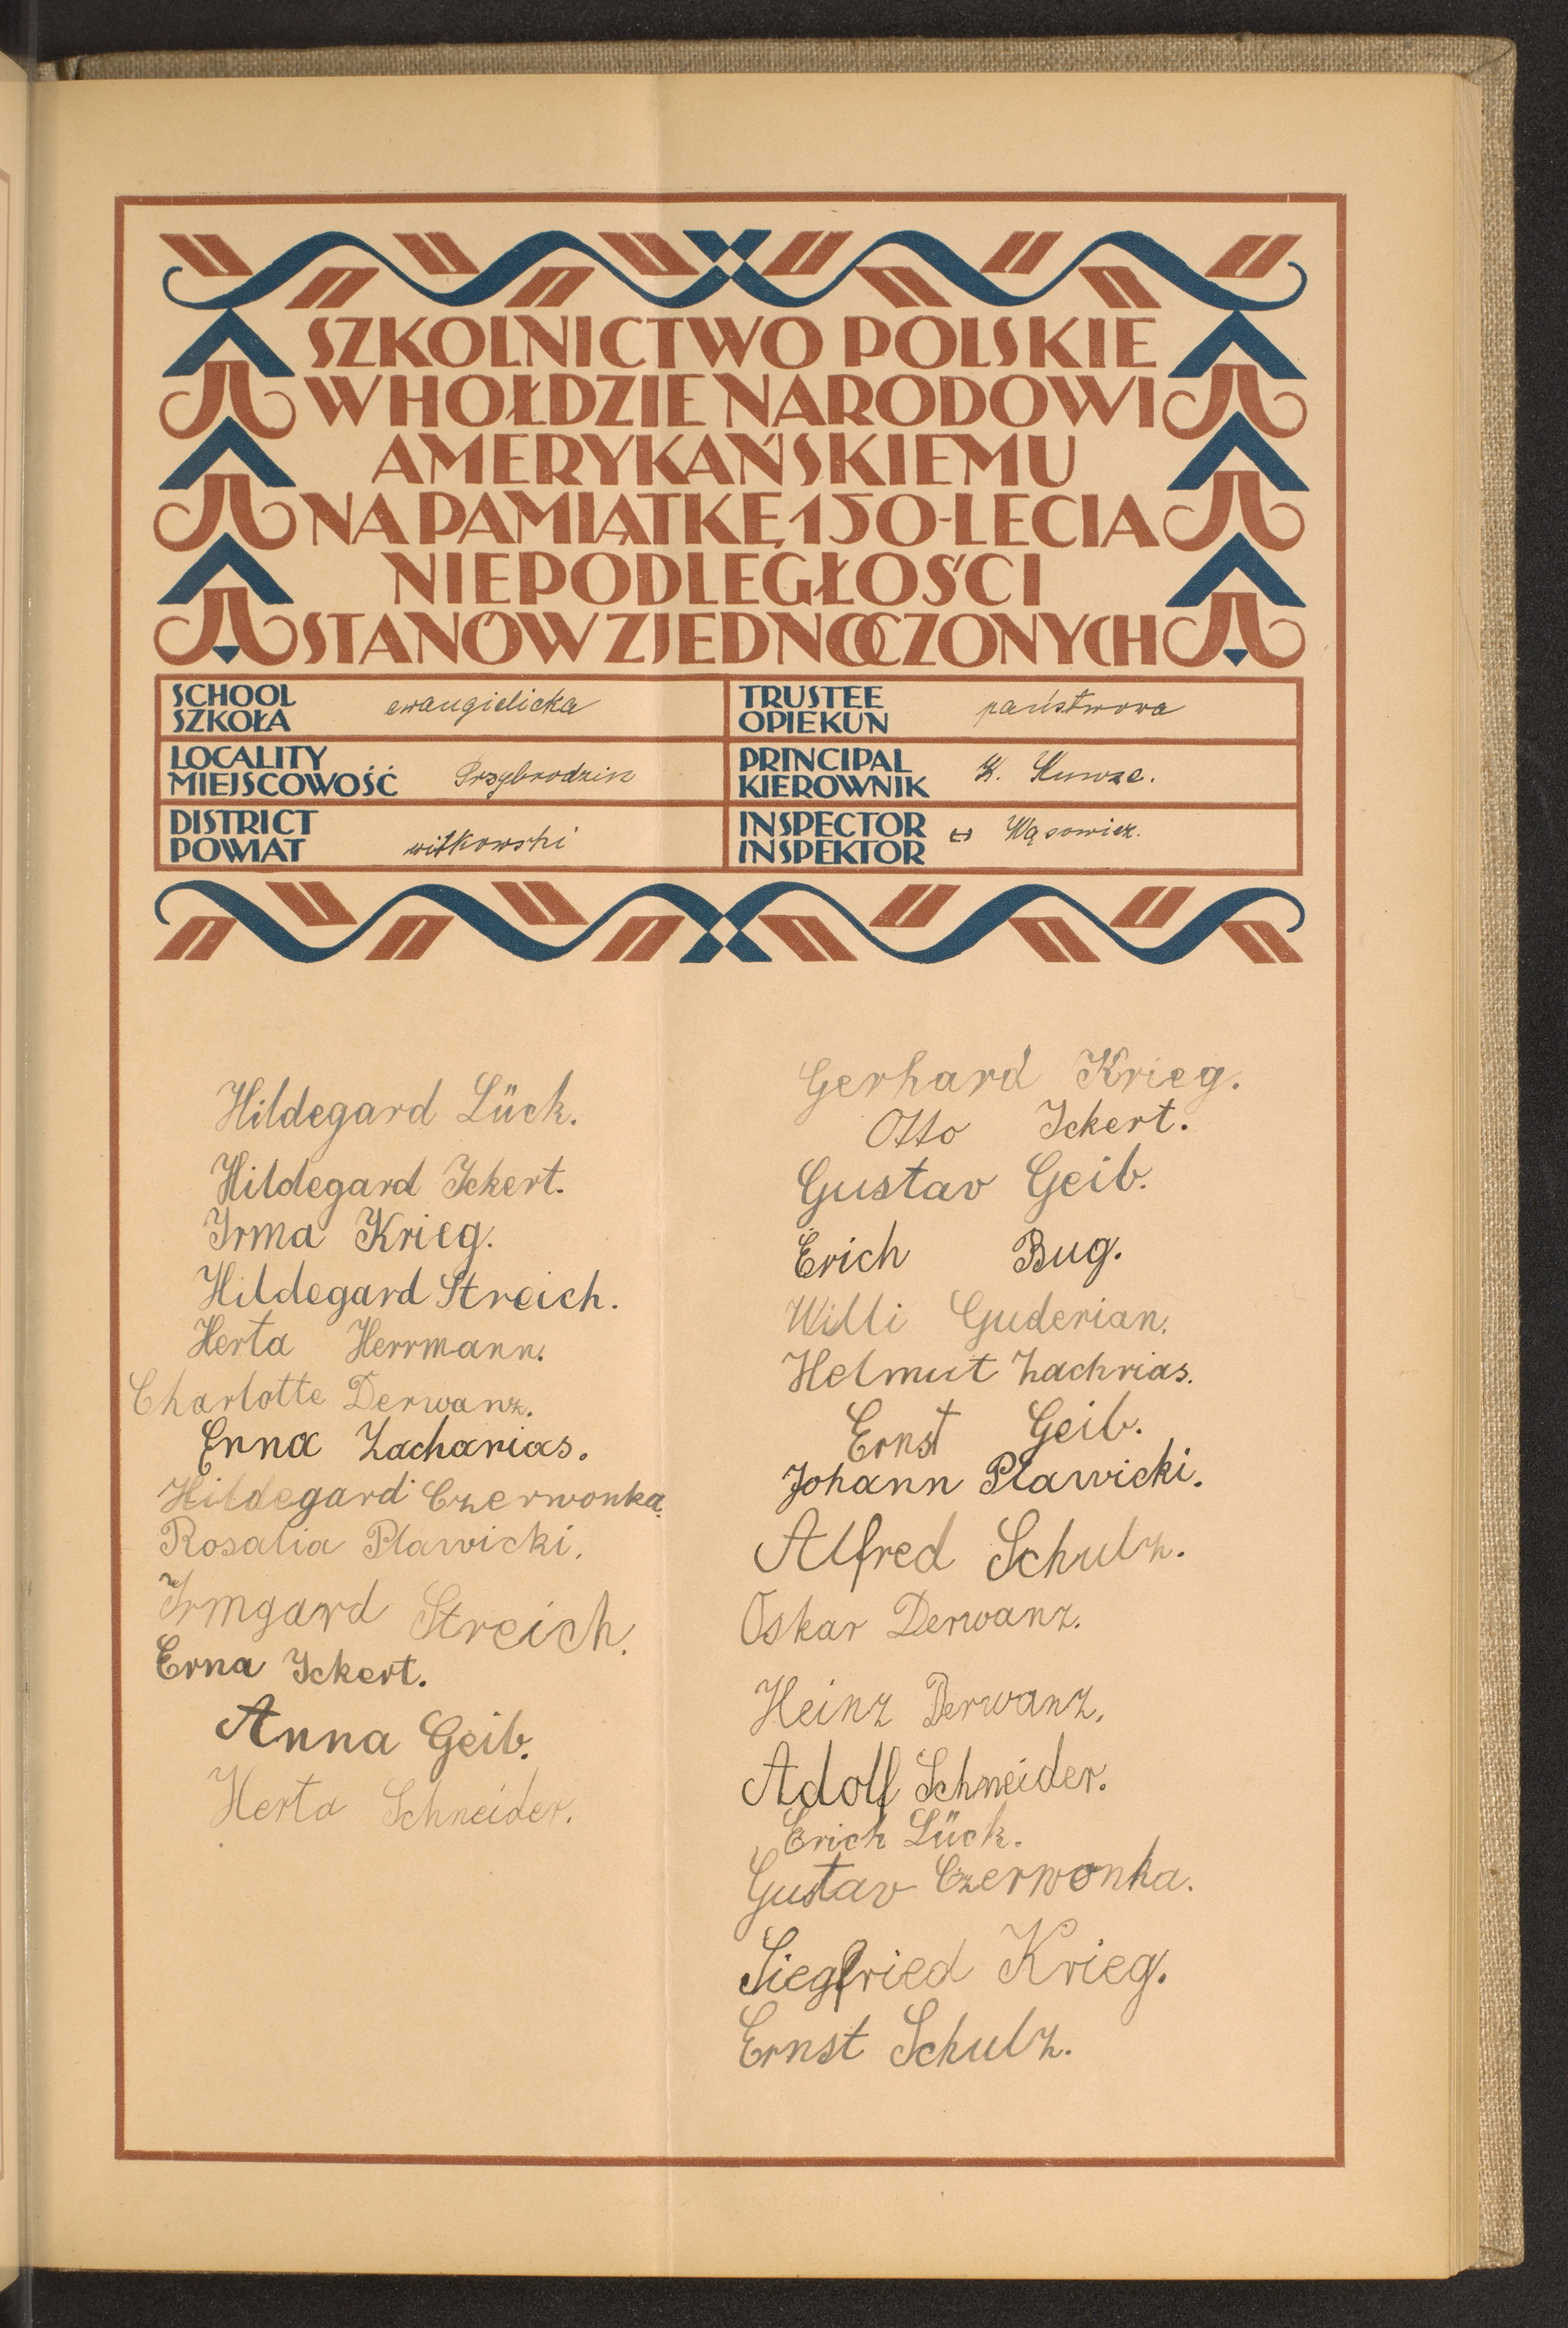 SZKOLNICTWO POLSKIE
W HOŁDZIE NARODOWI
AMERYKAŃSKIEMU
NA PAMIĄTKĘ 150-LECIA
NIEPODLEGŁOŚCI
STANÓW ZJEDNOCZONYCH
SCHOOL
SZKOŁA
ewangielicka
TRUSTEE
OPIEKUN
państwowa
LOCALITY
MIEJSCOWOŚĆ
Przybrodzin
PRINCIPAL
KIEROWNIK
K. Kunze.
DISTRICT
POWIAT
witkowski
INSPECTOR
INSPEKTOR
Wąsowicz.
Hildegard Lück.
Hildegard Ickert.
Irma Krieg.
Hildegard Streich.
Herta Herrmann.
Charlotte Derwanz.
Erna Zacharias.
Hildegard Czerwonka.
Rosalia Plawicki.
Irmgard Streich.
Erna Ickert.
Anna Geib.
Herta Schneider.
Gerhard Krieg.
Otto Ickert.
Gustav Geib.
Erich Bug.
Willi Guderian.
Helmut Zachrias.
Ernst Geib.
Johann Plawicki.
Alfred Schulz.
Oskar Derwanz.
Heinz Derwanz.
Adolf Schneider.
Erich Lück.
Gustav Czerwonka.
Siegfried Krieg.
Ernst Schulz.